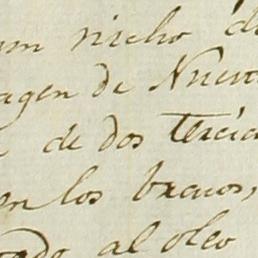 un nicho d
agen de Nuev
de dos tercia
en los brazos,
tado al oleo